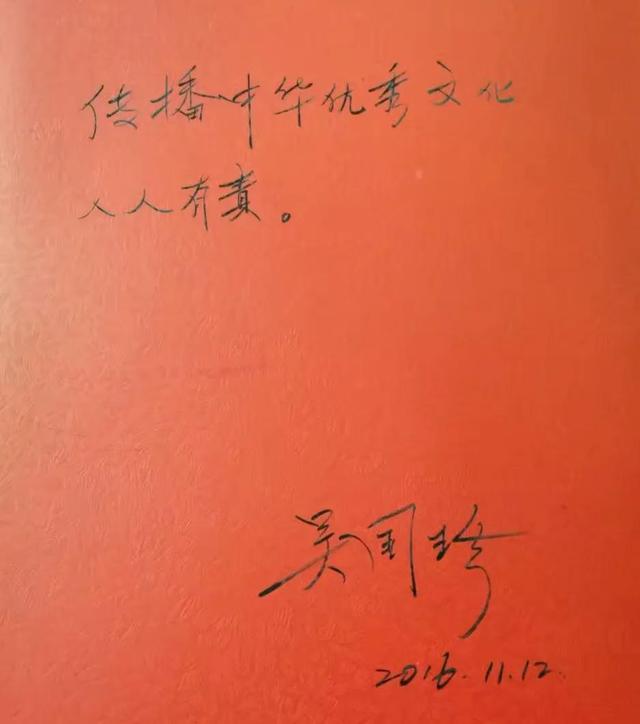 传播中华优秀文化
人人有责。
吴国珍
2016.11.12.